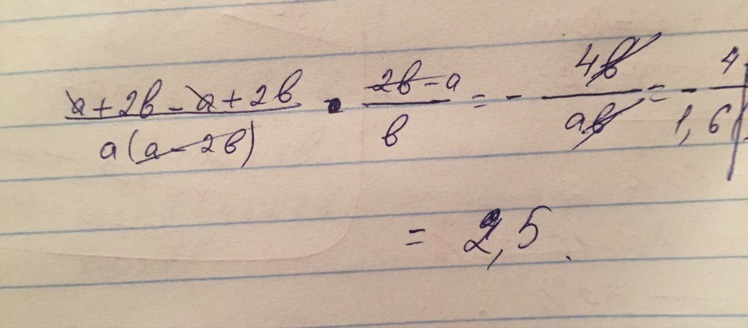 (a + 2b - a + 2b) / (a(a - 2b)) • (2b - a) / b = - 4b / ab = - 4 / 1,6
= 2,5.